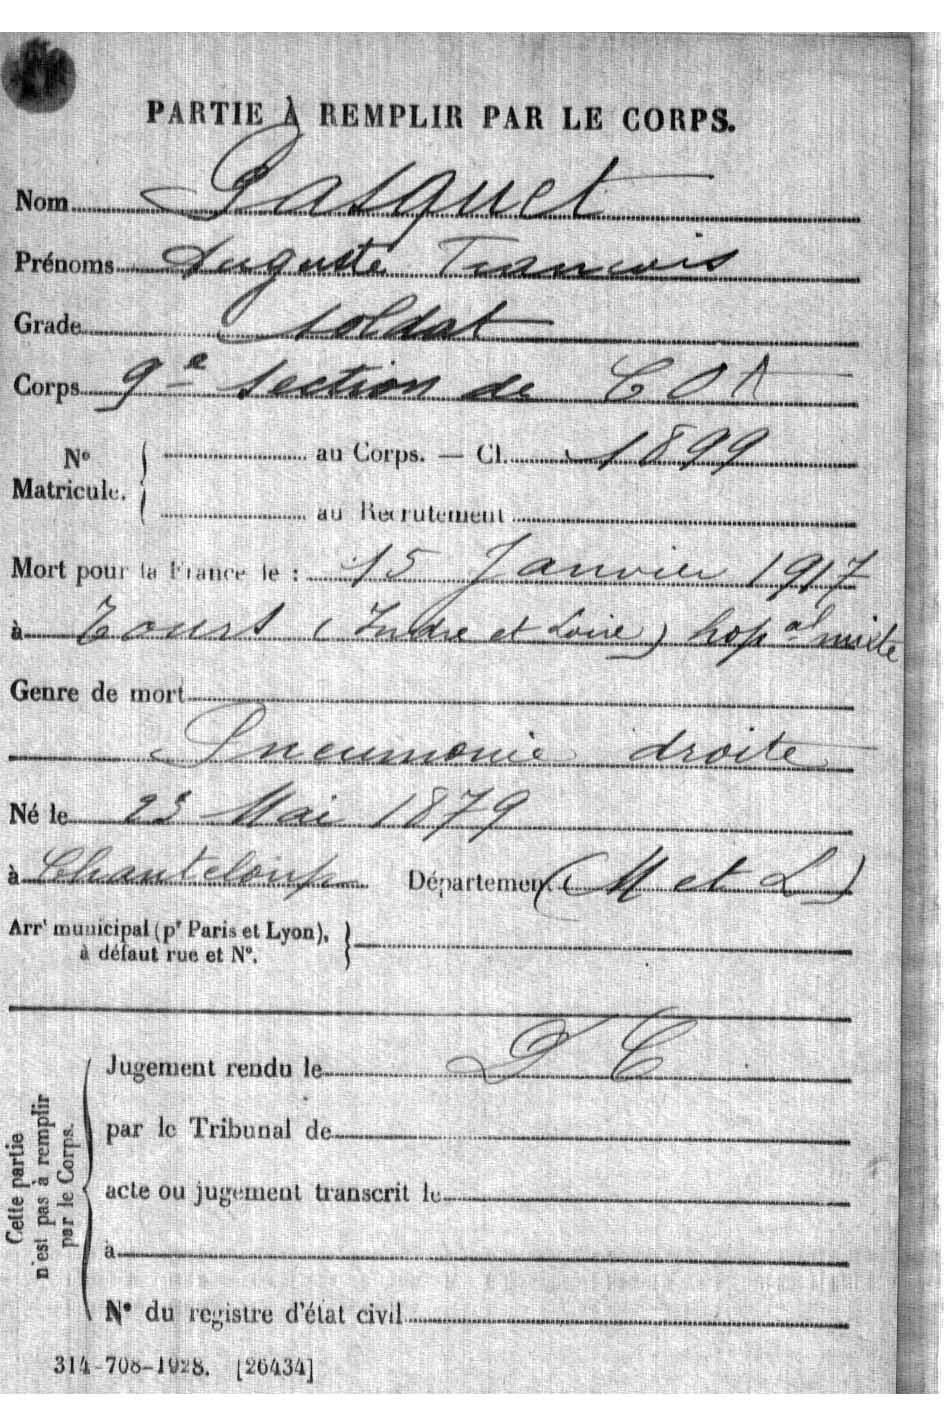 PARTIE À REMPLIR PAR LE CORPS.
Nom Pasquet
Prénoms Auguste Francois
Grade soldat
Corps 9e section de C O A
N° Matricule. { au Corps. — Cl. 1899
au Recrutement
Mort pour la France le : 15 Janvier 1917
à Tours (Indre et Loire) hopal mixte
Genre de mort
Pneumonie droite
Né le 23 Mai 1879
à Chanteloup Département (M et L)
Arrt municipal (pr Paris et Lyon), à défaut rue et N°. }
Cette partie n'est pas à remplir par le Corps.
Jugement rendu le D C
par le Tribunal de
acte ou jugement transcrit le
à
N° du registre d'état civil
314-708-1928. [26434]